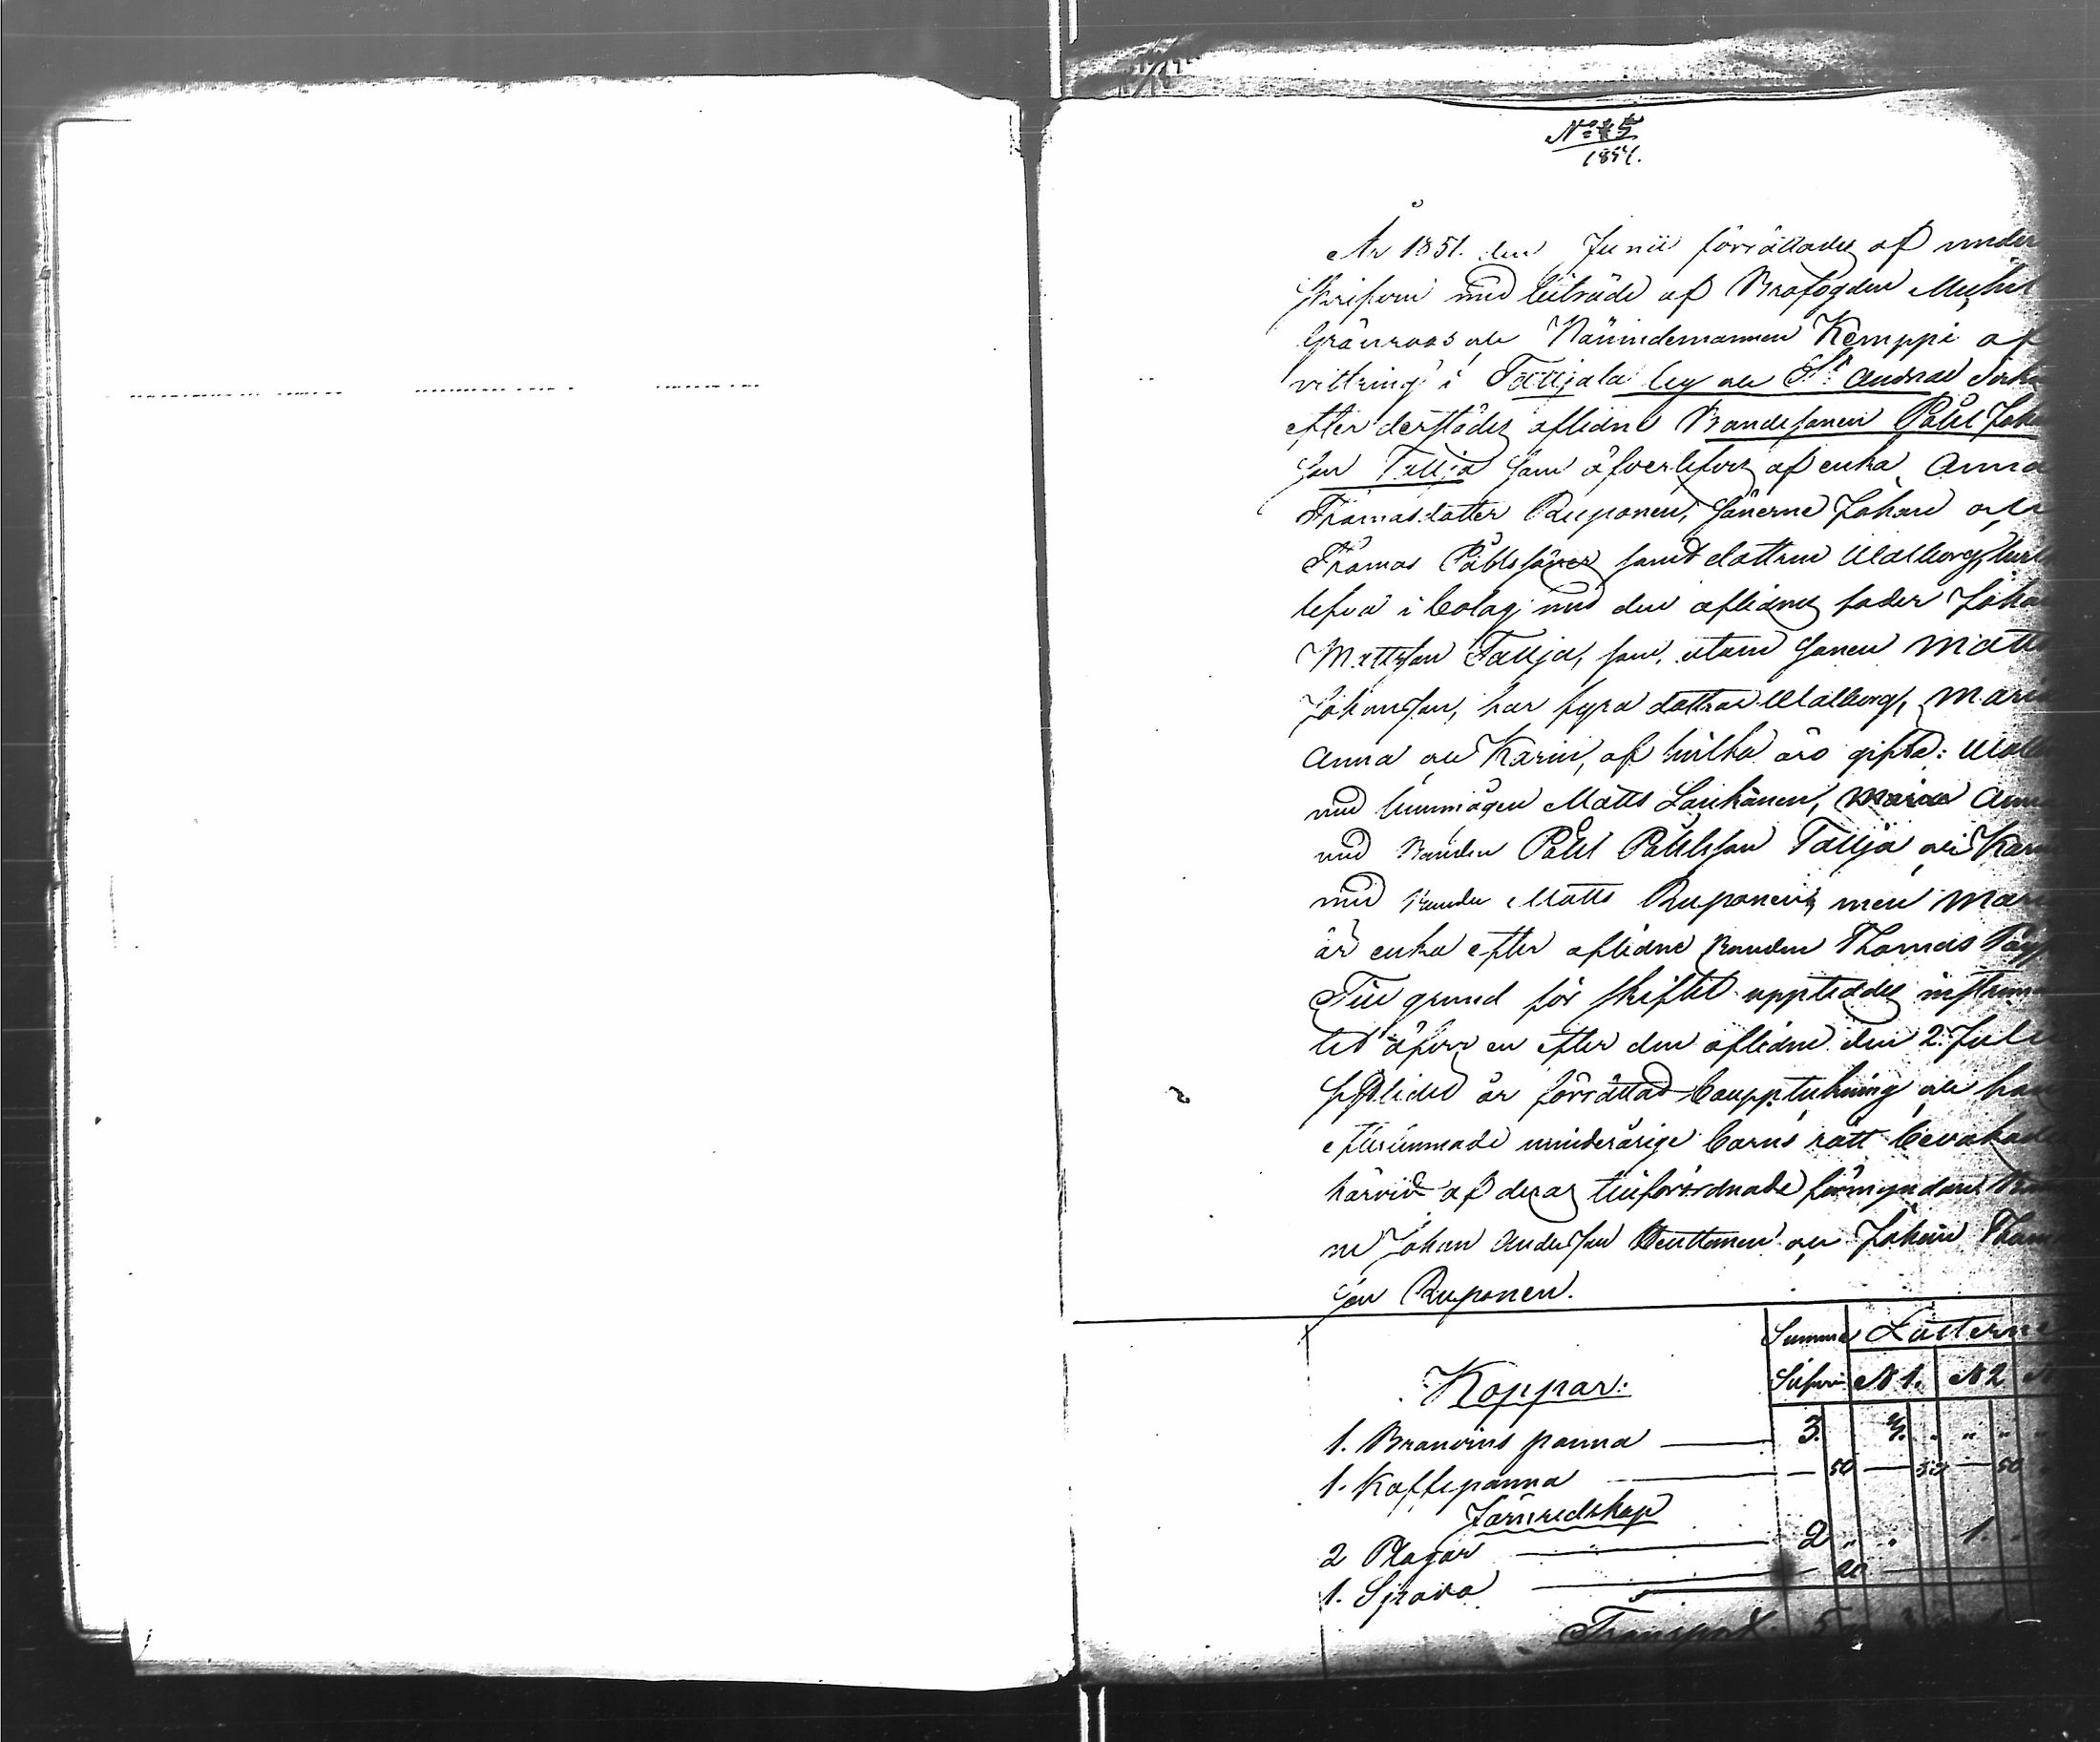 1851.
År 1851. den Junii förrättades af under
skrifven med biträde af Krofogden Michel
Grönroos och Nämndemannen Kemppi af
vittring i Talljala by och St Andreæ Sock
efter derstädes aflidne Bondesonen Påhl Joha
son Tallja som öfverlefves af enka Anna
Thomasdotter Ruponen, sönerne Johan och
Thomas Påhlssöner samt dottren Walborg, hvilk
lefva i bolag med den aflidnes fader Joha
Mattsson Tallja, som, utom sonen Matts
Johansson, har fyra döttrar Walborg, Maria
Anna och Karin, af hvilka äro gifta: Walb
med Matts Laukanen, Anna
med Bonden Påhl Påhlsson Tallja och Kari
med Bonden Matts Ruponen, men Mari
är enka efter aflidne Bonden Thomas
Till grund för skiftet uppteddes instrume
tet öfver en efter den aflidne den 2. Julii
sistlidet år förrättad bouppteckning och hans
efterlemnade minderårige barns rätt bevakades
härvid af deras tillförordnade förmyndare Bönder
ne Johan Andersson och Johan Thoma
son Ruponen.
Summa Lotterne
Koppar: Silfver N 1. N 2 N
1. Branvins panna 3. 3.
1. Kaffepanna 50 50 50
Järnredskap
2 Plogar 2 1.
1. 20
Transport 5